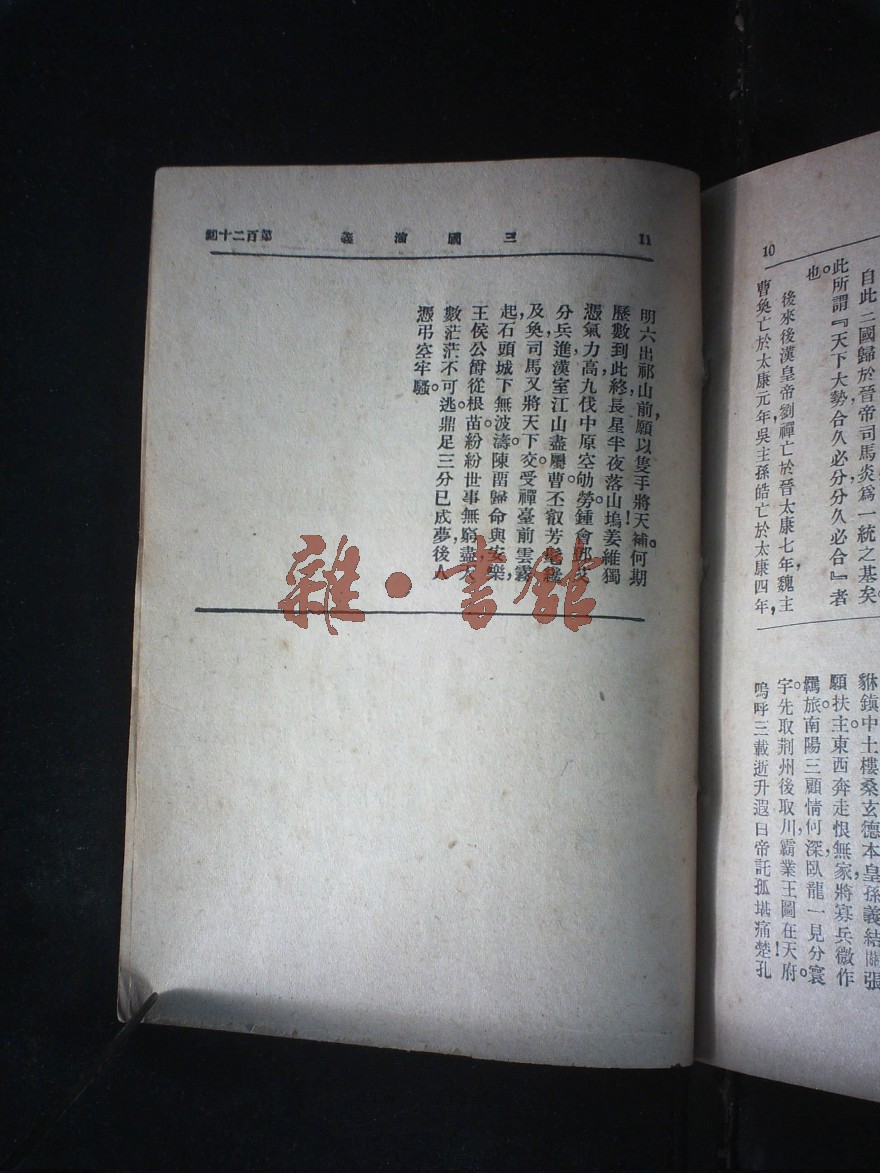 10
自此三國歸於晉帝司馬炎,爲一統之基矣。
此所謂『天下大勢合久必分,分久必合』者
也。
後來後漢皇帝劉禪亡於晉太康七年,魏主
曹奐亡於太康元年,吳主孫皓亡於太康四年,
貅鎮中土。樓桑玄德本皇孫,義結關張
願扶主。東西奔走恨無家,將寡兵微作
羈旅。南陽三顧情何深,臥龍一見分寰
宇。先取荆州後取川,霸業王圖在天府。
嗚呼三載逝升遐,白帝託孤堪痛楚!孔
11
三國演義
第百二十回
明六出祁山前,願以隻手將天補。何期
歷數到此終,長星半夜落山塢!姜維獨
憑氣力高,九伐中原空劬勞。鍾會鄧艾
分兵進,漢室江山盡屬曹。丕叡芳髦纔
及奐,司馬又將天下交。受禪臺前雲霧
起,石頭城下無波濤。陳留歸命與安樂,
王侯公爵從根苗。紛紛世事無窮盡,天
數茫茫不可逃。鼎足三分已成夢,後人
憑弔空牢騷。
雜·書舘